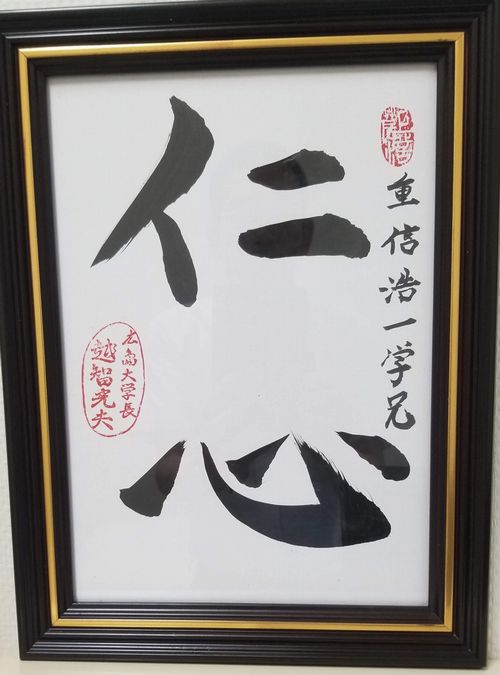 重信浩一学兄
仁心
広島大学長
越智光夫